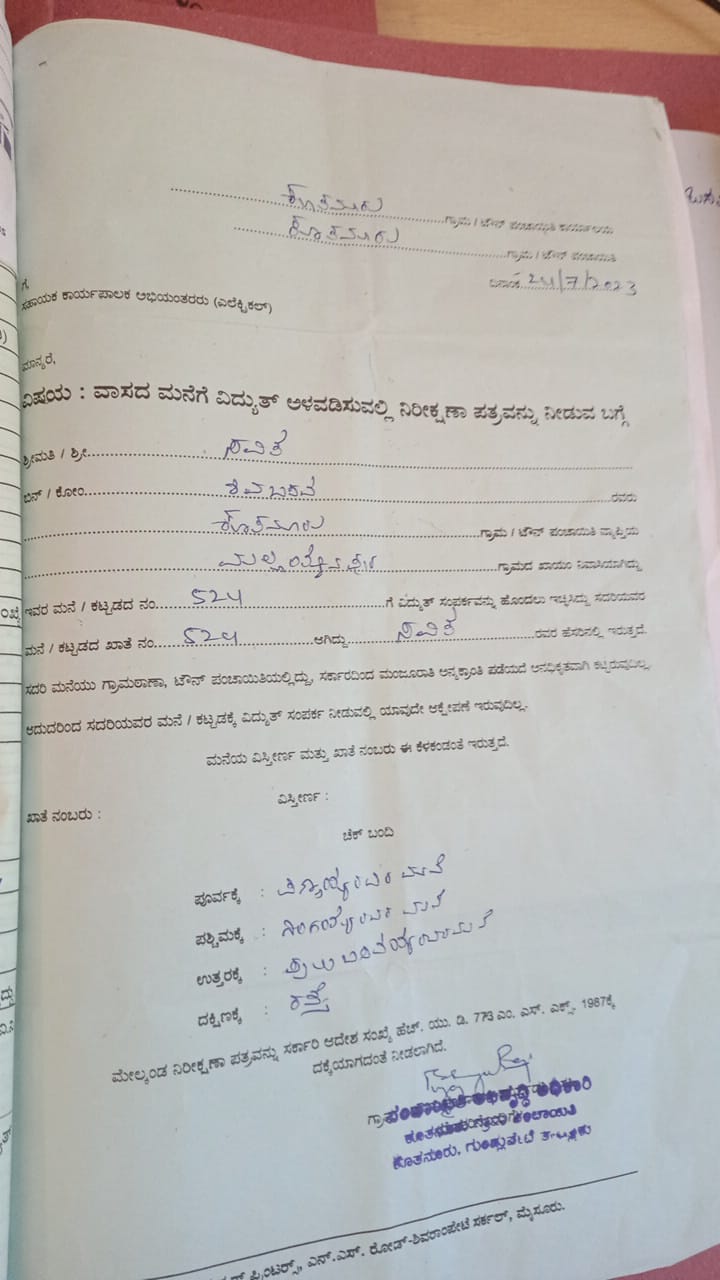 ಕೊತನೂರು ಗ್ರಾಮ / ಟೌನ್ ಪಂಚಾಯಿತಿ ಕಾರ್ಯಾಲಯ
ಕೊತನೂರು ಗ್ರಾಮ / ಟೌನ್ ಪಂಚಾಯಿತಿ
ದಿನಾಂಕ 24/7/2023
ಗೆ,
ಸಹಾಯಕ ಕಾರ್ಯಪಾಲಕ ಅಭಿಯಂತರರು (ಎಲೆಕ್ಟ್ರಿಕಲ್)
ಮಾನ್ಯರೆ,
ವಿಷಯ : ವಾಸದ ಮನೆಗೆ ವಿದ್ಯುತ್ ಅಳವಡಿಸುವಲ್ಲಿ ನಿರೀಕ್ಷಣಾ ಪತ್ರವನ್ನು ನೀಡುವ ಬಗ್ಗೆ
ಶ್ರೀಮತಿ / ಶ್ರೀ ಸವಿತ
ಬಿನ್ / ಕೋಂ ರವರು
ಕೊತನೂರು ಗ್ರಾಮ / ಟೌನ್ ಪಂಚಾಯಿತಿ ವ್ಯಾಪ್ತಿಯ
ಗ್ರಾಮದ ಖಾಯಂ ನಿವಾಸಿಯಾಗಿದ್ದು
ಇವರ ಮನೆ / ಕಟ್ಟಡದ ನಂ 524 ಗೆ ವಿದ್ಯುತ್ ಸಂಪರ್ಕವನ್ನು ಹೊಂದಲು ಇಚ್ಛಿಸಿದ್ದು ಸದರಿಯವರ
ಮನೆ / ಕಟ್ಟಡದ ಖಾತೆ ನಂ 524 ಆಗಿದ್ದು ಸವಿತ ರವರ ಹೆಸರಿನಲ್ಲಿ ಇರುತ್ತದೆ.
ಸದರಿ ಮನೆಯು ಗ್ರಾಮಠಾಣಾ, ಟೌನ್ ಪಂಚಾಯಿತಿಯಲ್ಲಿದ್ದು, ಸರ್ಕಾರದಿಂದ ಮಂಜೂರಾತಿ ಅನ್ಯಕ್ರಾಂತಿ ಪಡೆಯದೆ ಅನಧಿಕೃತವಾಗಿ ಕಟ್ಟಿರುವುದಿಲ್ಲ.
ಆದುದರಿಂದ ಸದರಿಯವರ ಮನೆ / ಕಟ್ಟಡಕ್ಕೆ ವಿದ್ಯುತ್ ಸಂಪರ್ಕ ನೀಡುವಲ್ಲಿ ಯಾವುದೇ ಆಕ್ಷೇಪಣೆ ಇರುವುದಿಲ್ಲ.
ಮನೆಯ ವಿಸ್ತೀರ್ಣ ಮತ್ತು ಖಾತೆ ನಂಬರು ಈ ಕೆಳಕಂಡಂತೆ ಇರುತ್ತದೆ.
ಖಾತೆ ನಂಬರು : ವಿಸ್ತೀರ್ಣ :
ಚೆಕ್ ಬಂದಿ
ಪೂರ್ವಕ್ಕೆ : ಮನೆ
ಪಶ್ಚಿಮಕ್ಕೆ : ಮನೆ
ಉತ್ತರಕ್ಕೆ :
ದಕ್ಷಿಣಕ್ಕೆ : ರಸ್ತೆ
ಮೇಲ್ಕಂಡ ನಿರೀಕ್ಷಣಾ ಪತ್ರವನ್ನು ಸರ್ಕಾರಿ ಆದೇಶ ಸಂಖ್ಯೆ ಹೆಚ್. ಯು. ಡಿ. 773 ಎಂ. ಎಸ್. ಎಕ್ಸ್. 1987ಕ್ಕೆ
ದಕ್ಕೆಯಾಗದಂತೆ ನೀಡಲಾಗಿದೆ.
ಪಂಚಾಯಿತಿ ಅಭಿವೃದ್ಧಿ ಅಧಿಕಾರಿ
ಕೊತನೂರು ಗ್ರಾಮ ಪಂಚಾಯಿತಿ
ಕೊತನೂರು, ಗುಂಡ್ಲುಪೇಟೆ ತಾಲ್ಲೂಕು
ಪ್ರಿಂಟರ್ಸ್, ಎನ್.ಎಸ್. ರೋಡ್-ಶಿವರಾಂಪೇಟೆ ಸರ್ಕಲ್, ಮೈಸೂರು.